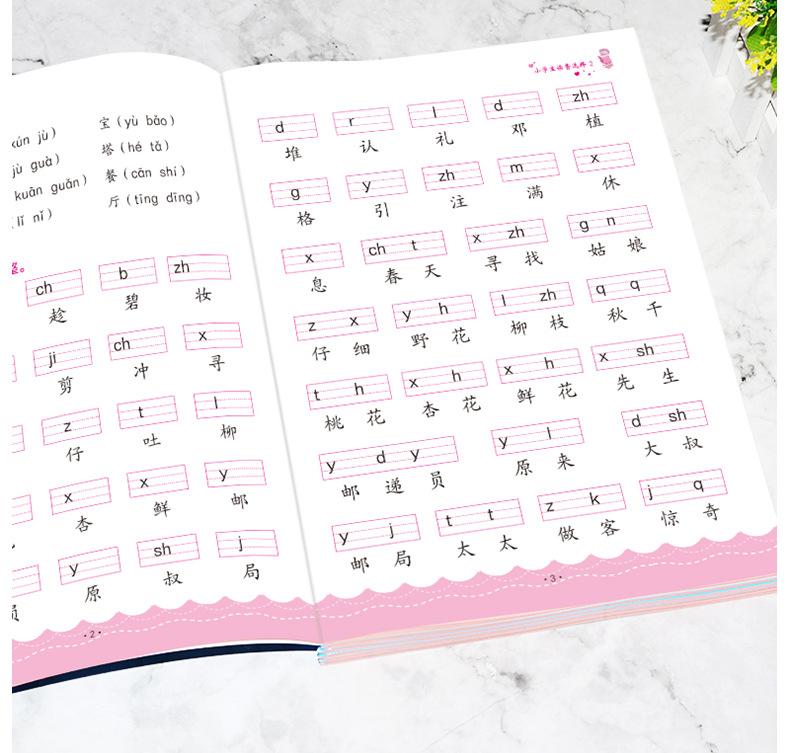 xún jù） 宝（yù bǎo）
jù guà） 塔（hé tǎ）
kuān guǎn） 餐（cān shí）
lǐ nǐ） 厅（tīng dīng）
整。
ch b zh
趁 碧 妆
ji ch x
剪 冲 寻
z t l
仔 吐 柳
x x y
杏 鲜 邮
y sh j
员 原 叔 局
·2·
小学生 2
d r l d zh
堆 认 礼 邓 植
g y zh m x
格 引 注 满 休
x ch t x zh g n
息 春 天 寻 找 姑 娘
z x y h l zh q q
仔 细 野 花 柳 枝 秋 千
t h x h x h x sh
桃 花 杏 花 鲜 花 先 生
y d y y l d sh
邮 递 员 原 来 大 叔
y j t t z k j q
邮 局 太 太 做 客 惊 奇
·3·